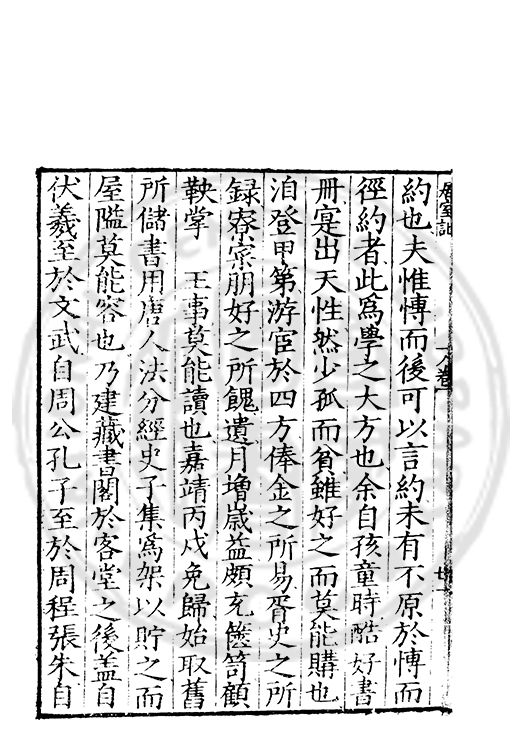 卷
約也夫惟慱而後可以言約未有不原於慱而
徑約者此爲學之大方也余自孩童時酷好書
冊寔出天性然少孤而貧雖好之而莫能購也
洎登甲第游宦於四方俸金之所易胥史之所
録寮寀朋好之所餽遺月增嵗益頗充篋笥顧
鞅掌　王事莫能讀也嘉靖丙戌免歸始取舊
所儲書用唐人法分經史子集爲架以貯之而
屋隘莫能容也乃建藏書閣於客堂之後盖自
伏羲至於文武自周公孔子至於周程張朱自